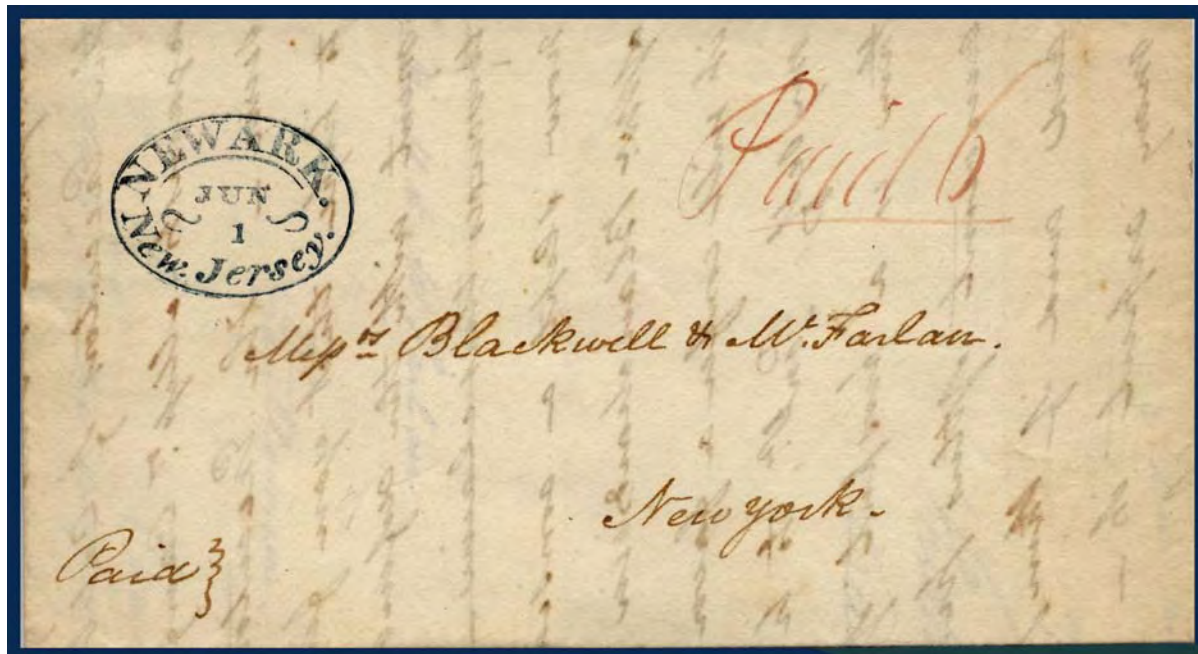 NEWARK.
JUN
1
New. Jersey.
Paid 6
Messrs Blackwell & McFarlan.
New york.
Paid